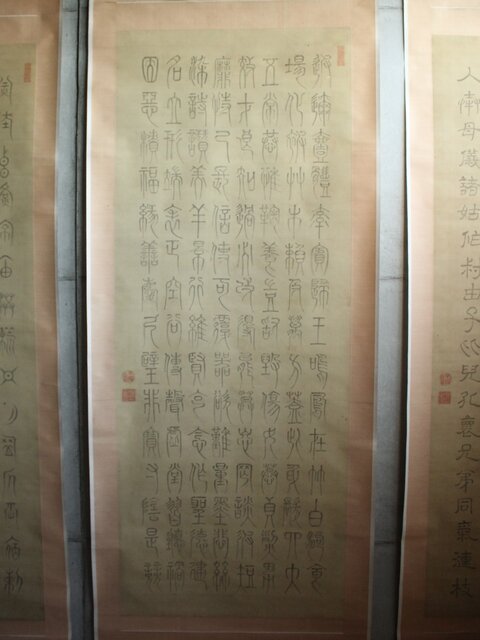 入奉母儀諸姑伯叔猶子比兒孔懷兄弟同氣連枝
遐邇壹體率賓歸王鳴鳳在竹白駒食
場化被草木賴及萬方蓋此身髮四大
五常恭惟鞠養豈敢毀傷女慕貞絜男
效才良知過必改得能莫忘罔談彼短
靡恃己長信使可覆器欲難量墨悲絲
染詩讚羔羊景行維賢克念作聖德建
名立形端表正空谷傳聲虛堂習聽禍
因惡積福緣善慶尺璧非寶寸陰是競